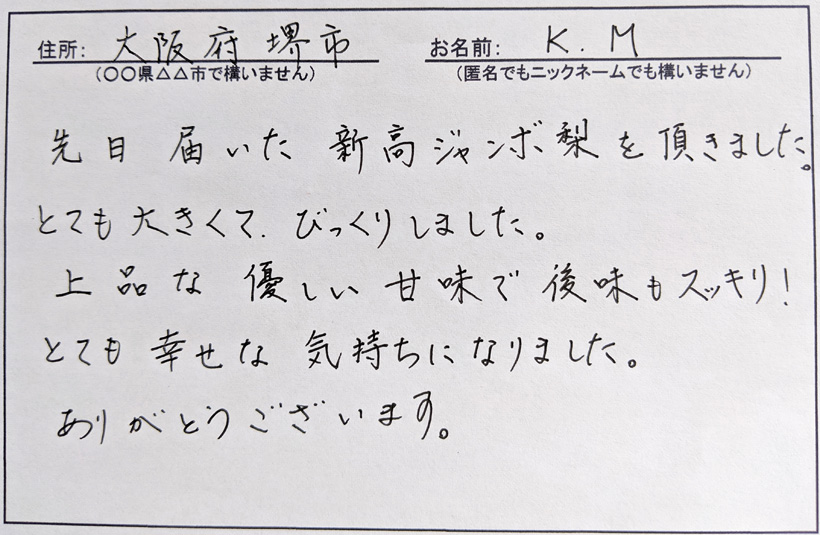 住所: 大阪府堺市 お名前: K.M
(〇〇県△△市で構いません) (匿名でもニックネームでも構いません)
先日届いた新高ジャンボ梨を頂きました。
とても大きくて、びっくりしました。
上品な優しい甘味で後味もスッキリ!
とても幸せな気持ちになりました。
ありがとうございます。